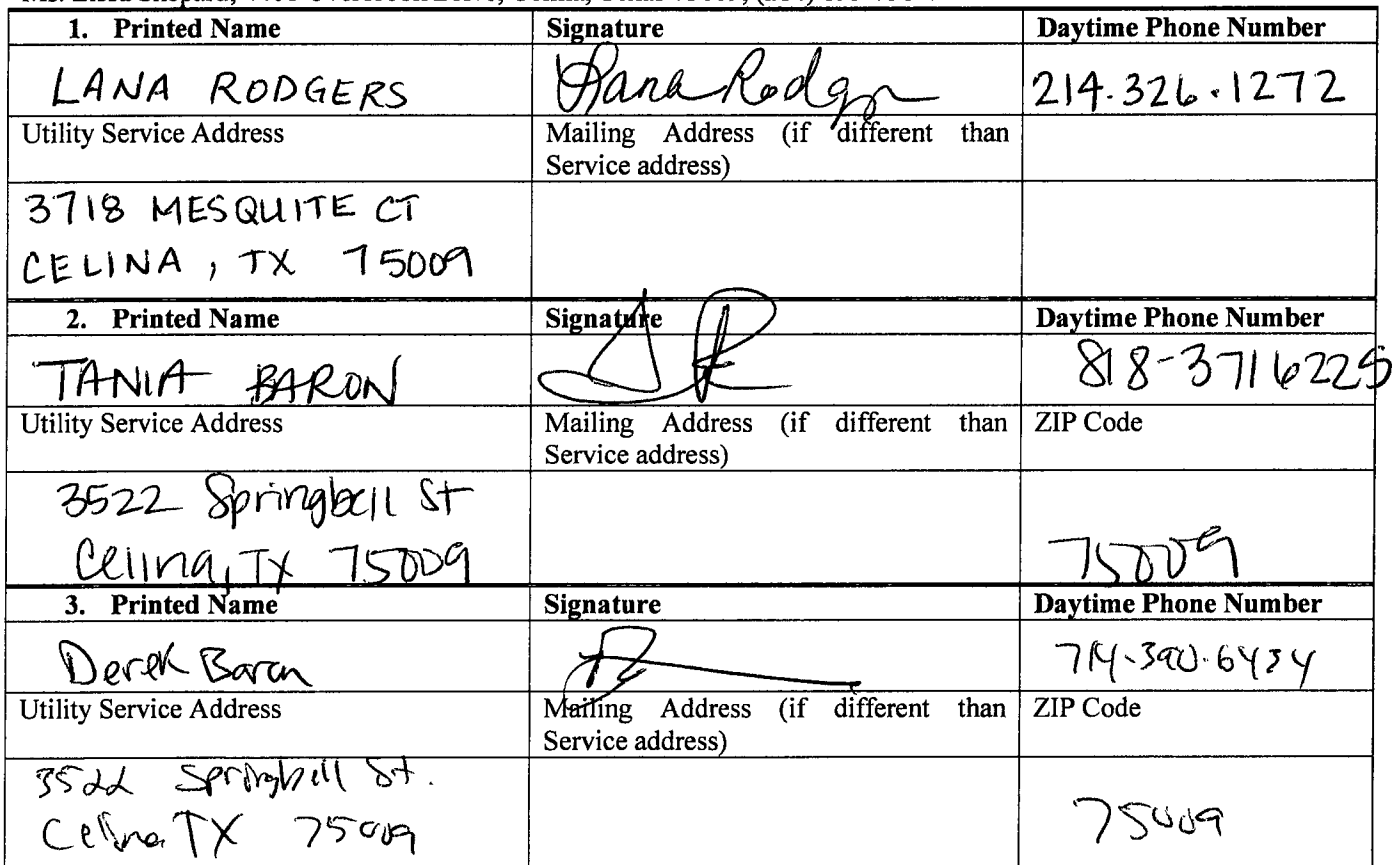 1. Printed Name Signature Daytime Phone Number
LANA RODGERS Lana Rodgers 214.326.1272
Utility Service Address Mailing Address (if different than
Service address)
3718 MESQUITE CT
CELINA, TX 75009
2. Printed Name Signature Daytime Phone Number
TANIA BARON 818-3716225
Utility Service Address Mailing Address (if different than ZIP Code
Service address)
3522 Springbell St
Celina, TX 75009 75009
3. Printed Name Signature Daytime Phone Number
Derek Baron 714.390.6434
Utility Service Address Mailing Address (if different than ZIP Code
Service address)
3522 Springbell St.
Celina TX 75009 75009